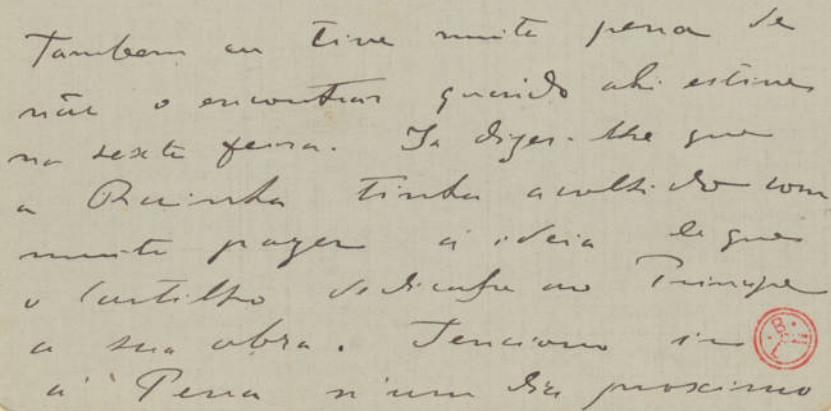 Tambem eu tive muita pena de
não o encontrar quando ahi estive
na sexta feira. Ia dizer-lhe que
a Rainha tinha acolhido com
muito prazer a ideia de que
o Castilho dedicasse ao Principe
a sua obra. Tenciono ir
á Pena n'um dia proximo